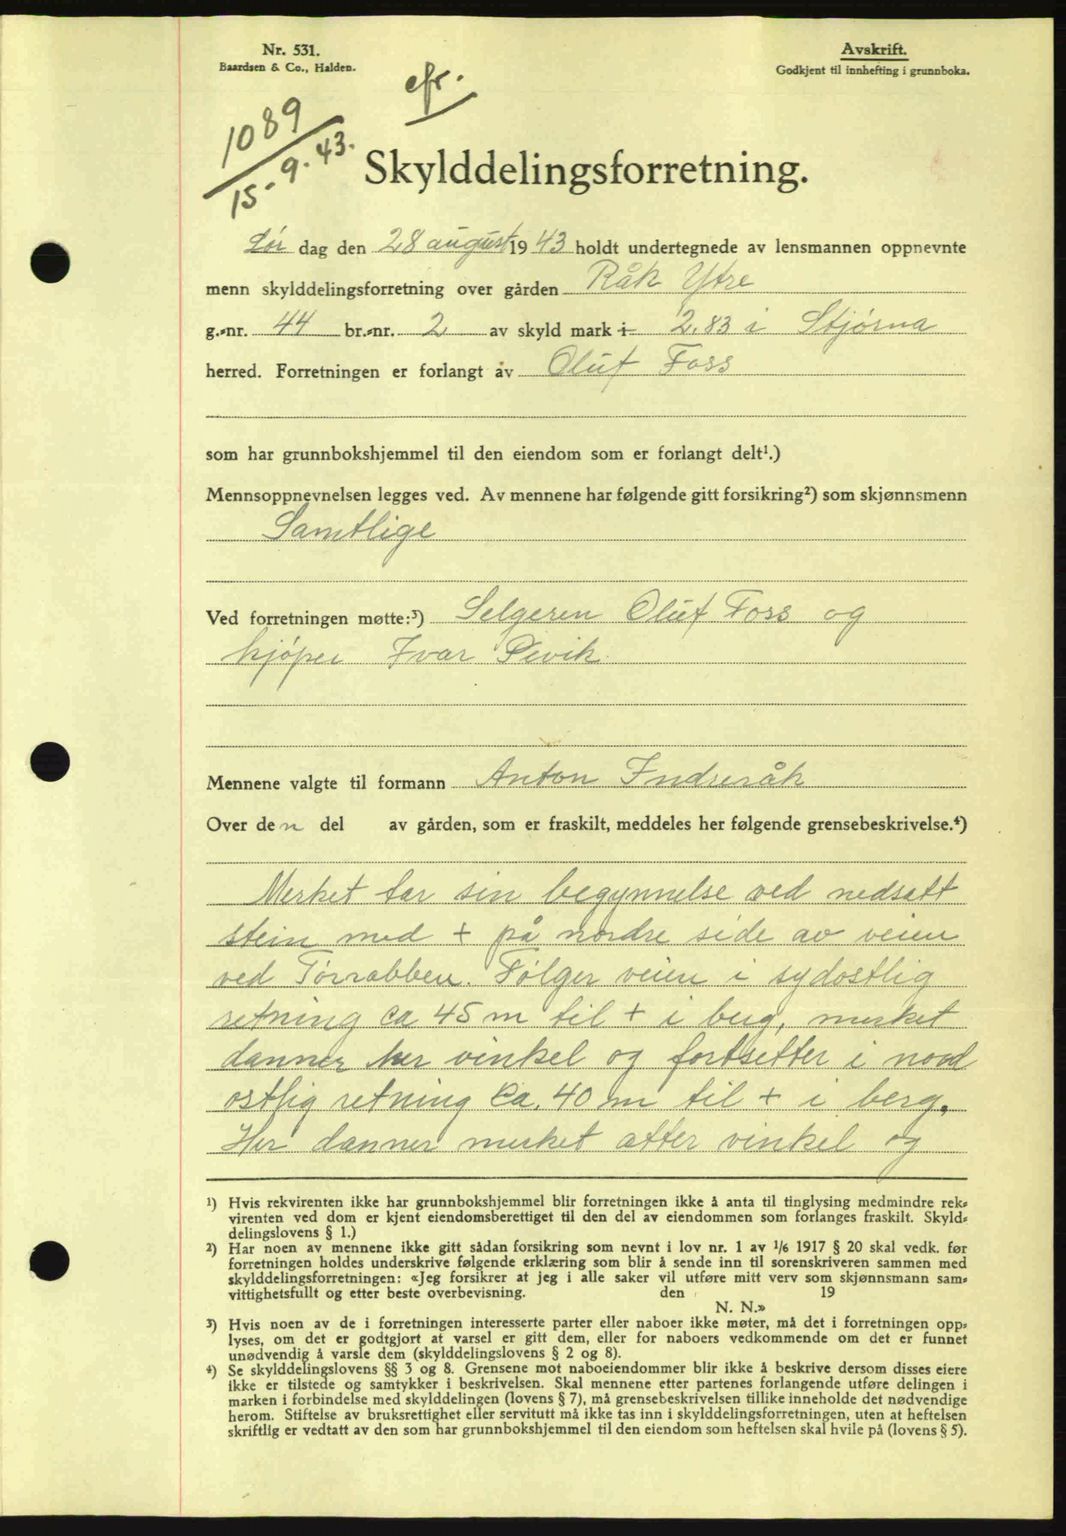 Nr. 531.
Baardsen & Co., Halden.
Avskrift.
Godkjent til innhefting i grunnboka.
efr.
1089
15-9.43.
Skylddelingsforretning.
Lør dag den 28 august 1943 holdt undertegnede av lensmannen oppnevnte
menn skylddelingsforretning over gården Råk Ytre
g.-nr. 44 br.-nr. 2 av skyld mark i 2.83 i Stjørna
herred. Forretningen er forlangt av Oluf Foss
som har grunnbokshjemmel til den eiendom som er forlangt delt¹.)
Mennsoppnevnelsen legges ved. Av mennene har følgende gitt forsikring²) som skjønnsmenn
Samtlige
Ved forretningen møtte:³) Selgeren Oluf Foss og
kjøper Ivar Pevik.
Mennene valgte til formann Anton Indreråk
Over den del av gården, som er fraskilt, meddeles her følgende grensebeskrivelse.⁴)
Merket tar sin begynnelse ved nedsatt
stein med + på nordre side av veien
ved Tørrabben. Følger veien i sydostlig
retning ca 45 m til + i berg, merket
danner her vinkel og fortsetter i nord
ostlig retning ca. 40 m til + i berg.
Her danner merket atter vinkel og
¹) Hvis rekvirenten ikke har grunnbokshjemmel blir forretningen ikke å anta til tinglysing medmindre rek-
virenten ved dom er kjent eiendomsberettiget til den del av eiendommen som forlanges fraskilt. Skyld-
delingslovens § 1.)
²) Har noen av mennene ikke gitt sådan forsikring som nevnt i lov nr. 1 av 1/6 1917 § 20 skal vedk. før
forretningen holdes underskrive følgende erklæring som blir å sende inn til sorenskriveren sammen med
skylddelingsforretningen: «Jeg forsikrer at jeg i alle saker vil utføre mitt verv som skjønnsmann sam-
vittighetsfullt og etter beste overbevisning. den 19
N. N.»
³) Hvis noen av de i forretningen interesserte parter eller naboer ikke møter, må det i forretningen opp-
lyses, om det er godtgjort at varsel er gitt dem, eller for naboers vedkommende om det er funnet
unødvendig å varsle dem (skylddelingslovens § 2 og 8).
⁴) Se skylddelingslovens §§ 3 og 8. Grensene mot naboeiendommer blir ikke å beskrive dersom disses eiere
ikke er tilstede og samtykker i beskrivelsen. Skal mennene etter partenes forlangende utføre delingen i
marken i forbindelse med skylddelingen (lovens § 7), må grensebeskrivelsen tillike inneholde det nødvendige
herom. Stiftelse av bruksrettighet eller servitutt må ikke tas inn i skylddelingsforretningen, uten at heftelsen
skriftlig er vedtatt av den som har grunnbokshjemmel til den eiendom som heftelsen skal hvile på (lovens § 5).